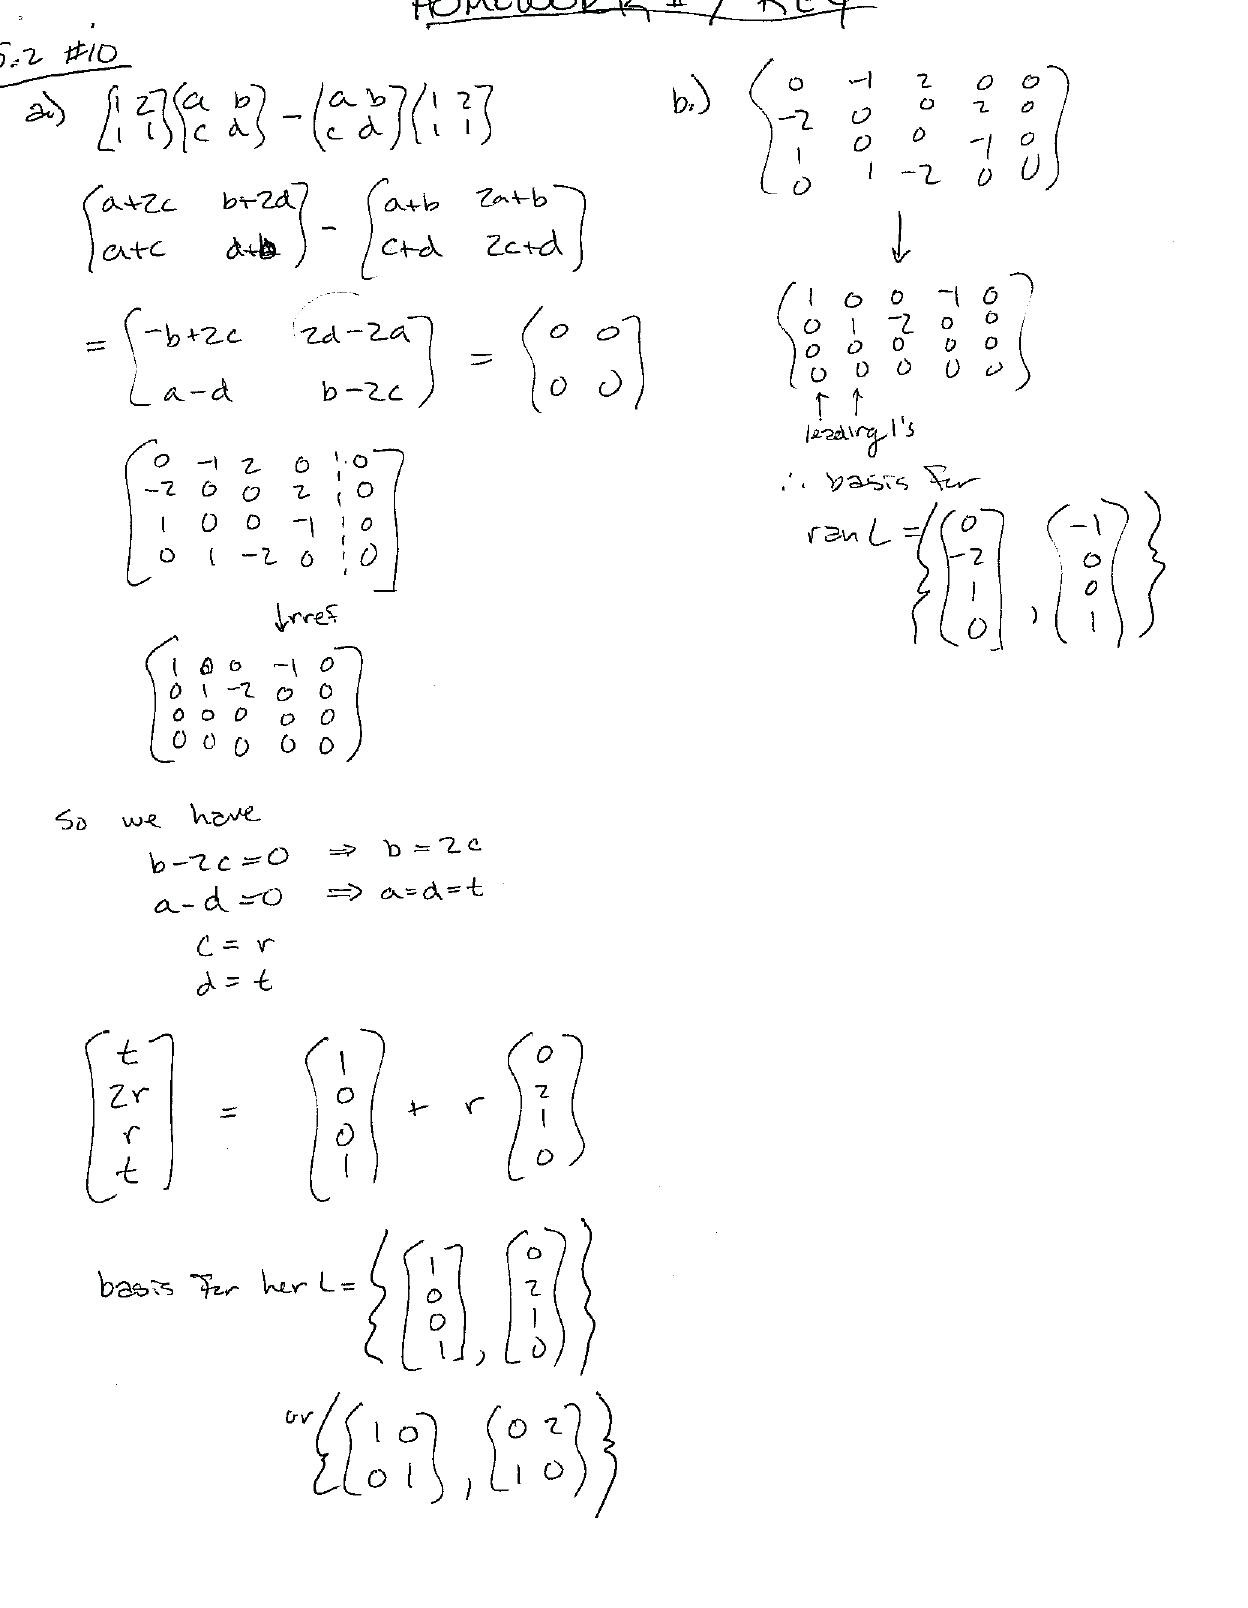 HOMEWORK # 7 KEY
5.2 #10
a.) [1 2; 1 1][a b; c d] - [a b; c d][1 2; 1 1]
[a+2c b+2d; a+c d+b] - [a+b 2a+b; c+d 2c+d]
= [-b+2c 2d-2a; a-d b-2c] = [0 0; 0 0]
[0 -1 2 0 | 0
-2 0 0 2 | 0
1 0 0 -1 | 0
0 1 -2 0 | 0]
↓rref
[1 0 0 -1 0
0 1 -2 0 0
0 0 0 0 0
0 0 0 0 0]
So we have
b-2c=0 ⇒ b=2c
a-d=0 ⇒ a=d=t
c = r
d = t
[t; 2r; r; t] = [1; 0; 0; 1] + r [0; 2; 1; 0]
basis for ker L = {[1; 0; 0; 1], [0; 2; 1; 0]}
or {[1 0; 0 1], [0 2; 1 0]}
b.) [0 -1 2 0 0
-2 0 0 2 0
1 0 0 -1 0
0 1 -2 0 0]
↓
[1 0 0 -1 0
0 1 -2 0 0
0 0 0 0 0
0 0 0 0 0]
↑ ↑
leading 1's
∴ basis for
ran L = {[0; -2; 1; 0], [-1; 0; 0; 1]}